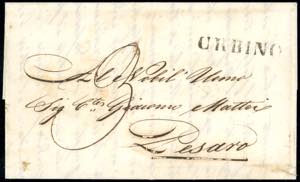 URBINO
Al Nobil Uomo
Sig C.te Giacomo Mattei
Pesaro